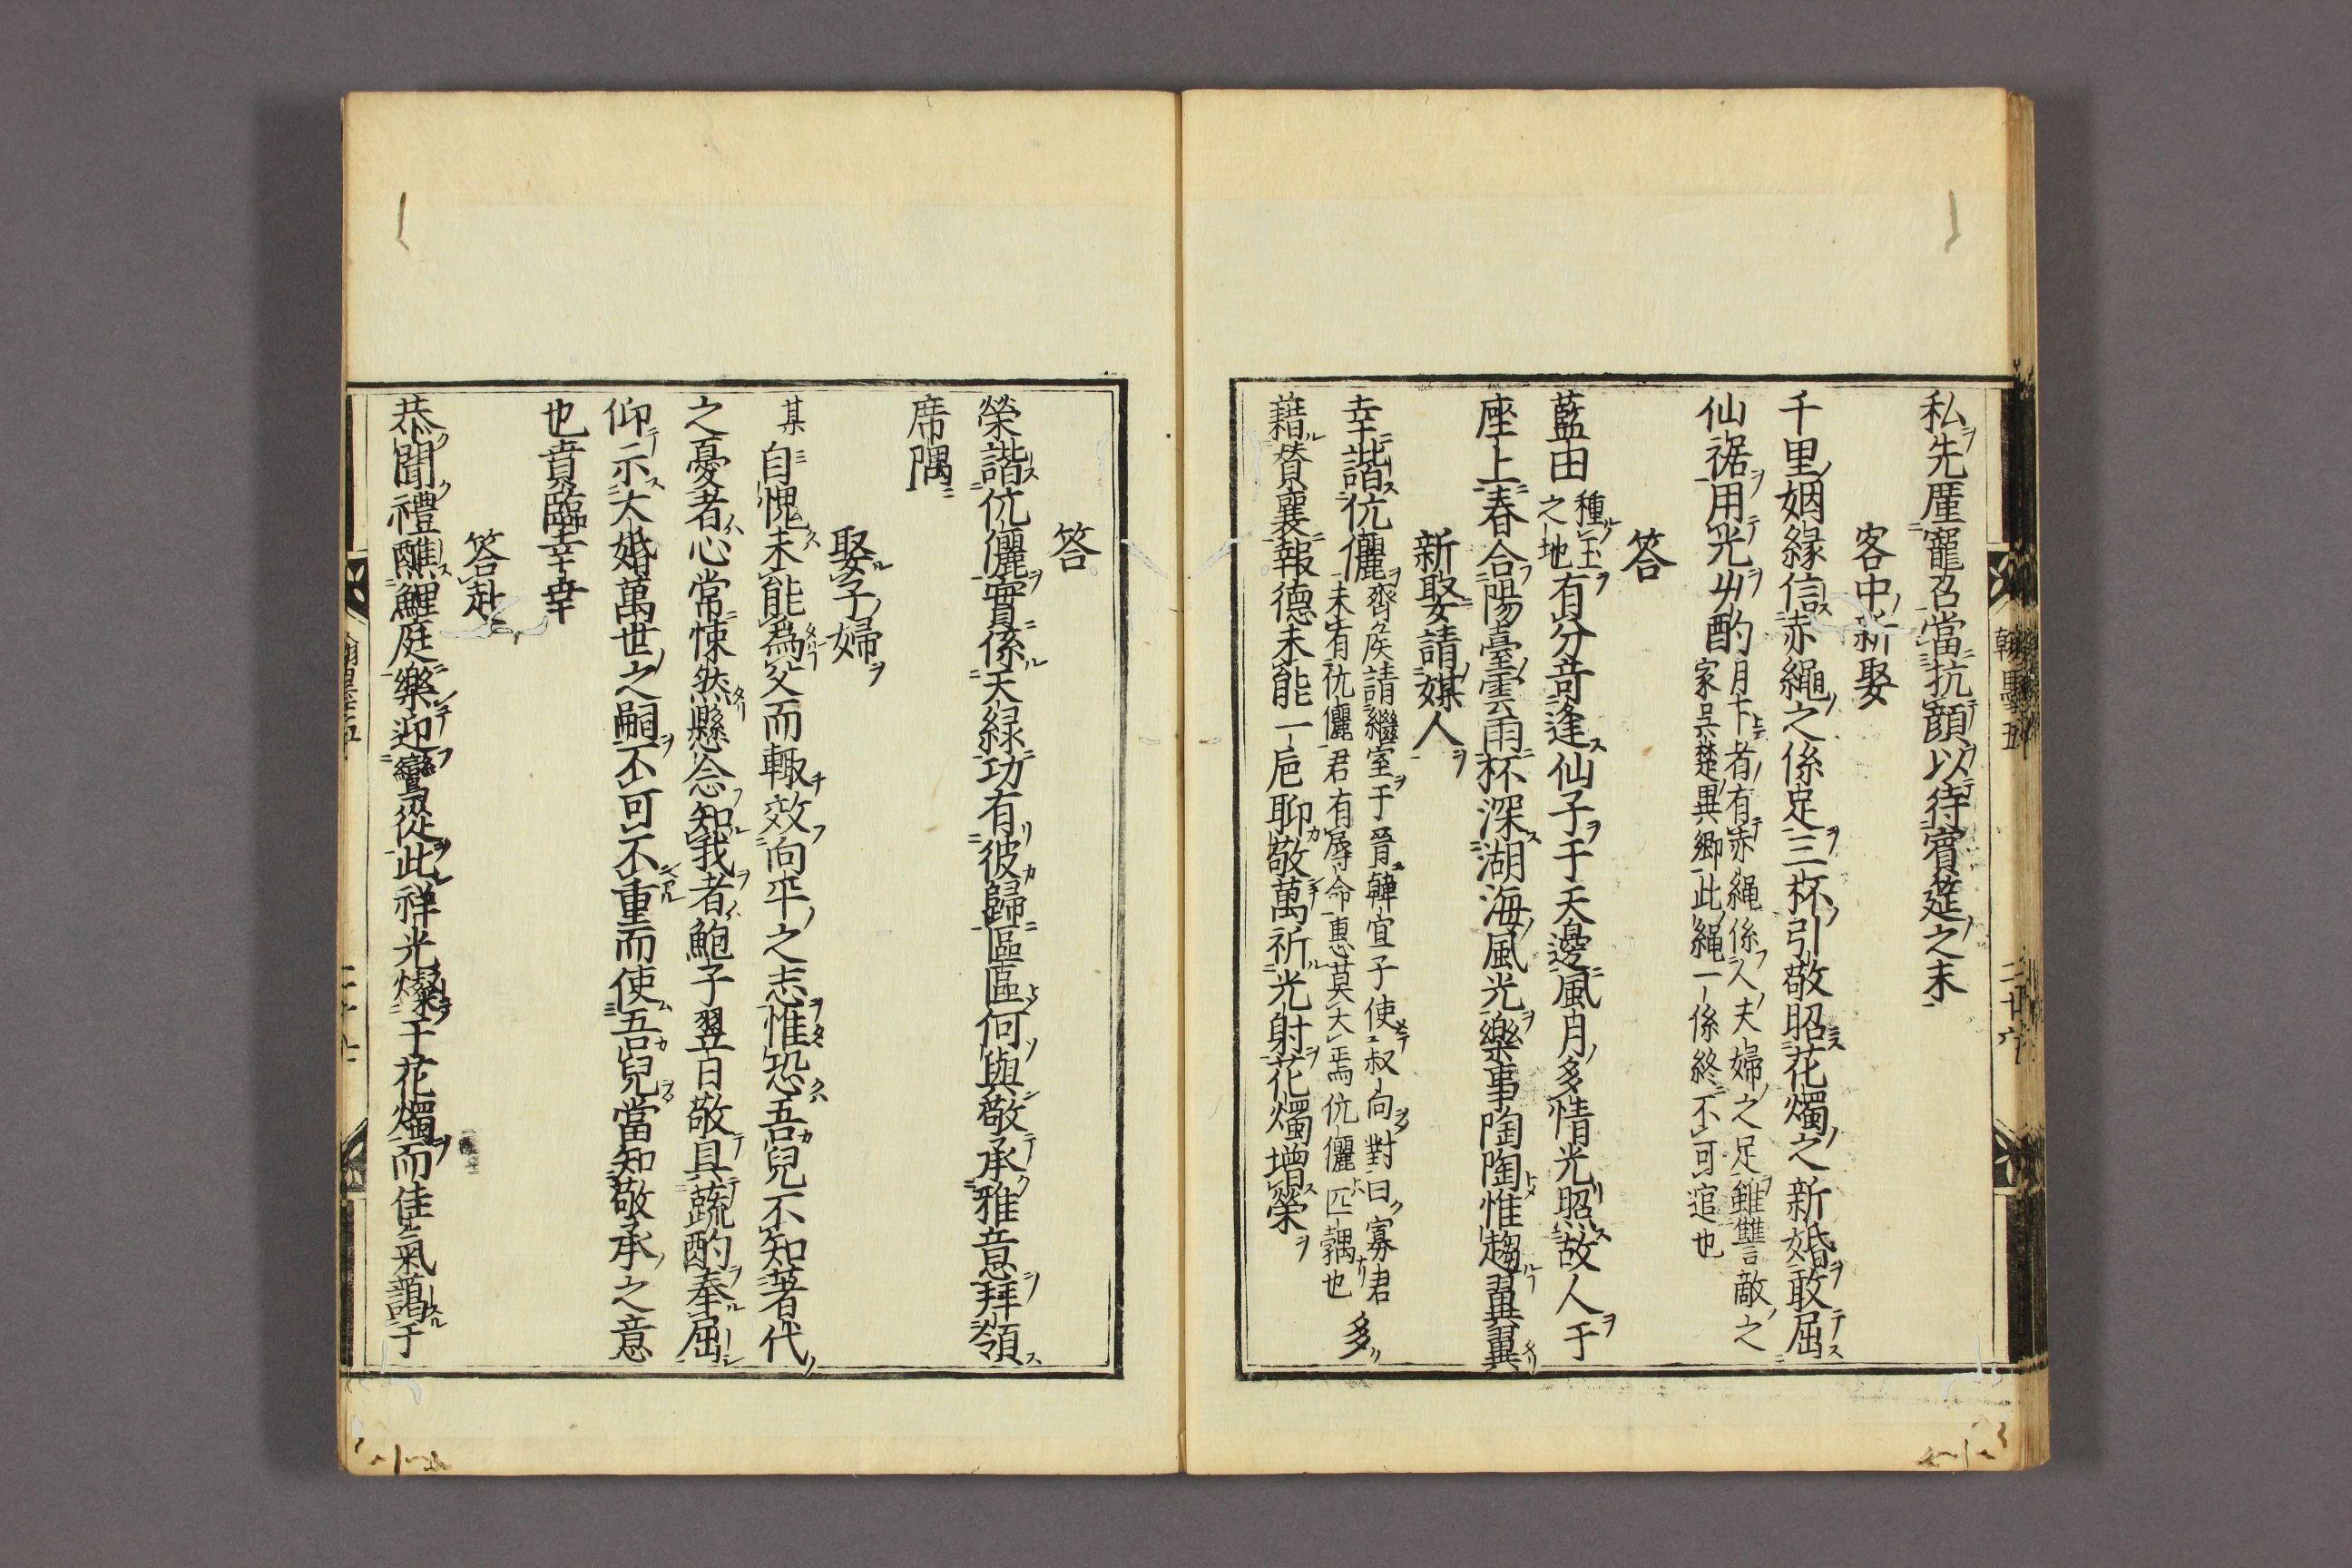 私先厪寵召當抗顔以待賓筵之末
客中新娶
千里姻縁信赤繩之係足三杯引敬昭花燭之新婚敢屈
仙裾用光少酌
月下者有赤繩係人夫婦之足雖讐敵之
家呉楚異郷此繩一係終不可逭也
答
藍田
種玉
之地
有分竒逢仙子于天邊風月多情光照故人于
座上春合陽臺雲雨杯深湖海風光樂事陶陶惟趨翼翼
新娶請媒人
幸諧伉儷
齊矦請繼室于晉韓宣子使叔向對曰寡君
未有伉儷君有辱命惠莫大焉伉儷匹耦也
多
藉賛襄報德未能一巵聊敬萬祈光射花燭增榮
答
榮諧伉儷實係天縁功有彼歸區區何與敬承雅意拜領
席隅
娶子婦
某自愧未能為父而輙效向平之志惟恐吾兒不知著代
之憂者心常悚然懸念知我者鮑子翌日敬具蔬酌奉屈
仰示大婚萬世之嗣不可不重而使吾兒當知敬承之意
也賁臨幸幸
答赴
恭聞禮醮鯉庭樂迎鸞從此祥光燦于花燭而佳氣藹于